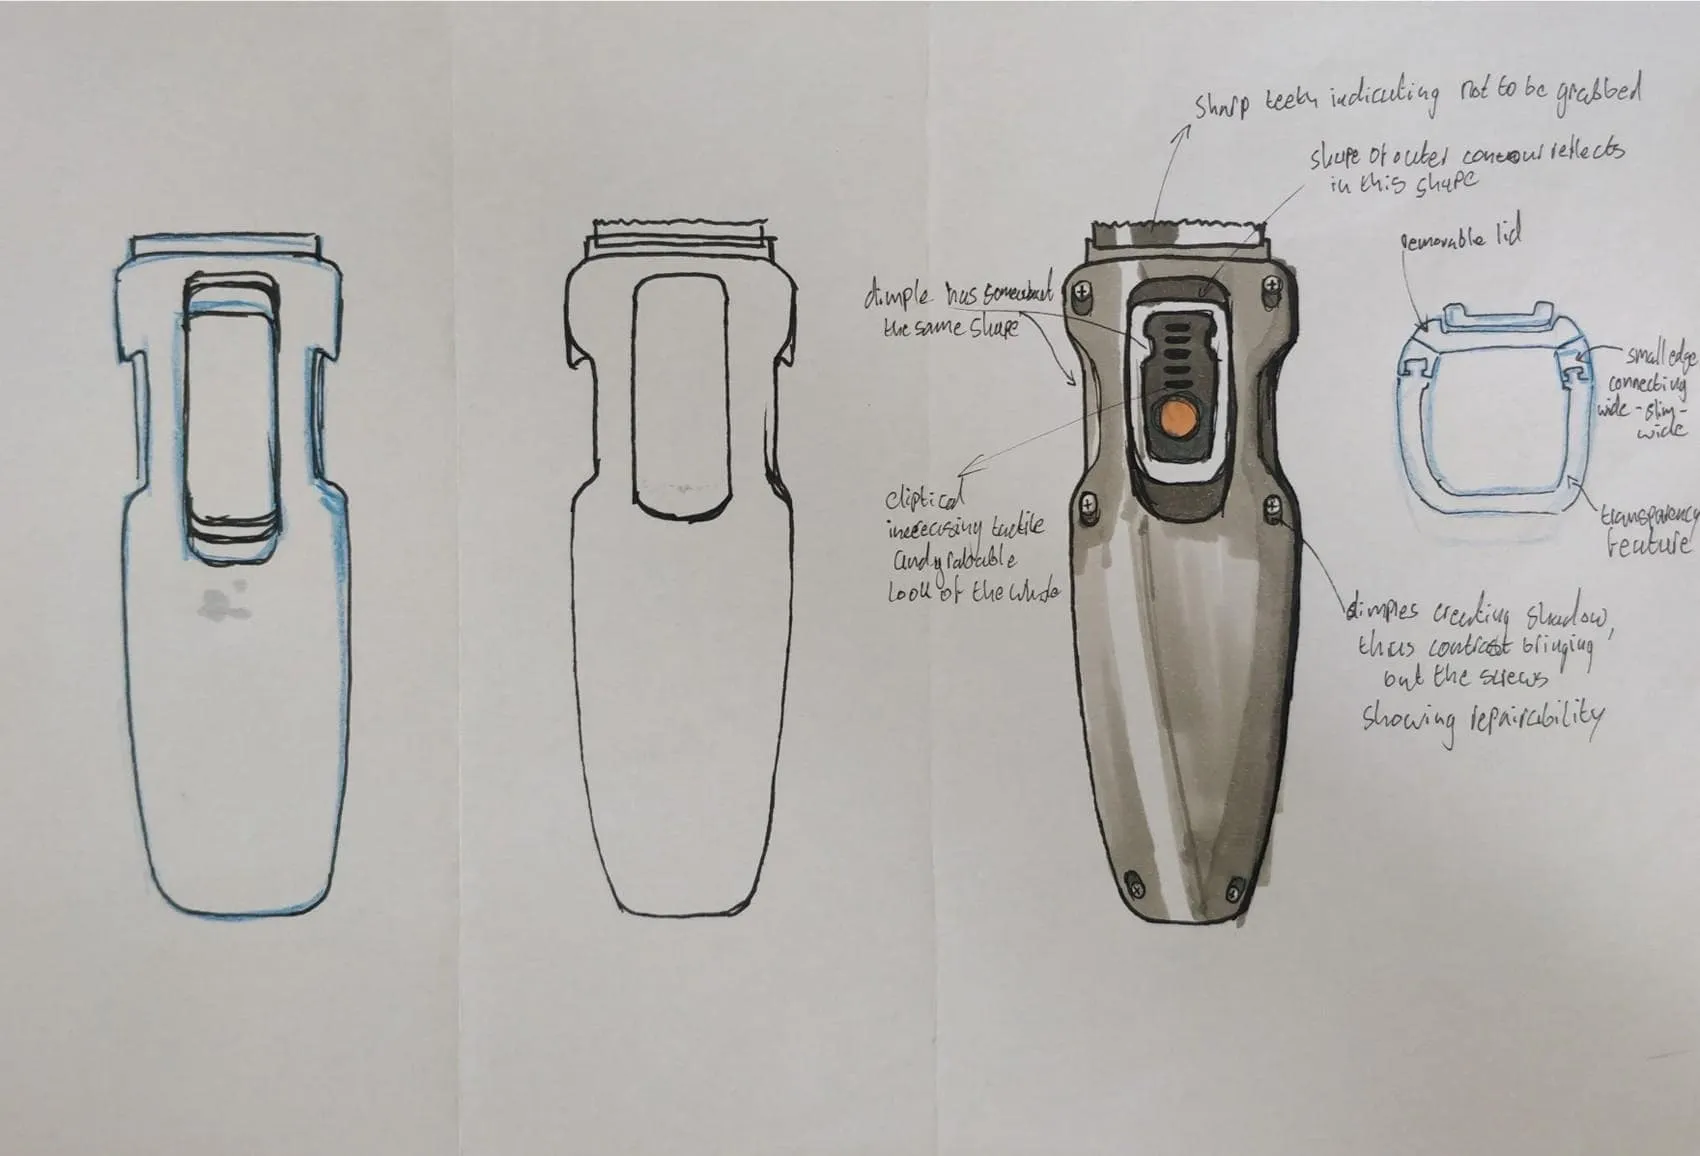 sharp teeth indicating not to be grabbed
shape of outer contour reflects
in this shape
removable lid
dimple has somewhat
the same shape
small edge
connecting
wide - slim -
wide
eliptical
increcising tactile
and grabable
look of the whole
transparency
feature
dimples creating shadow,
thus contrast bringing
out the screws
showing repairability